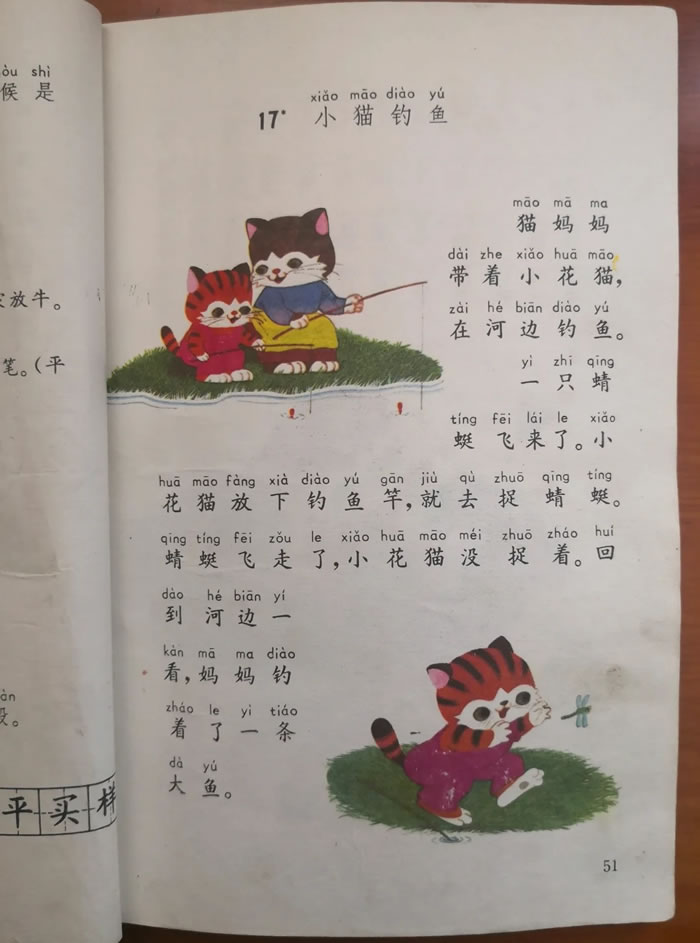 òu shì
候 是
放牛。
笔。(平
àn
平 买 样
xiǎo māo diào yú
17* 小 猫 钓 鱼
māo mā ma
猫 妈 妈
dài zhe xiǎo huā māo
带 着 小 花 猫,
zài hé biān diào yú
在 河 边 钓 鱼。
yì zhī qīng
一 只 蜻
tíng fēi lái le xiǎo
蜓 飞 来 了。小
huā māo fàng xià diào yú gān jiù qù zhuō qīng tíng
花 猫 放 下 钓 鱼 竿,就 去 捉 蜻 蜓。
qīng tíng fēi zǒu le xiǎo huā māo méi zhuō zháo huí
蜻 蜓 飞 走 了,小 花 猫 没 捉 着。回
dào hé biān yí
到 河 边 一
kàn mā ma diào
看,妈 妈 钓
zháo le yì tiáo
着 了 一 条
dà yú
大 鱼。
51